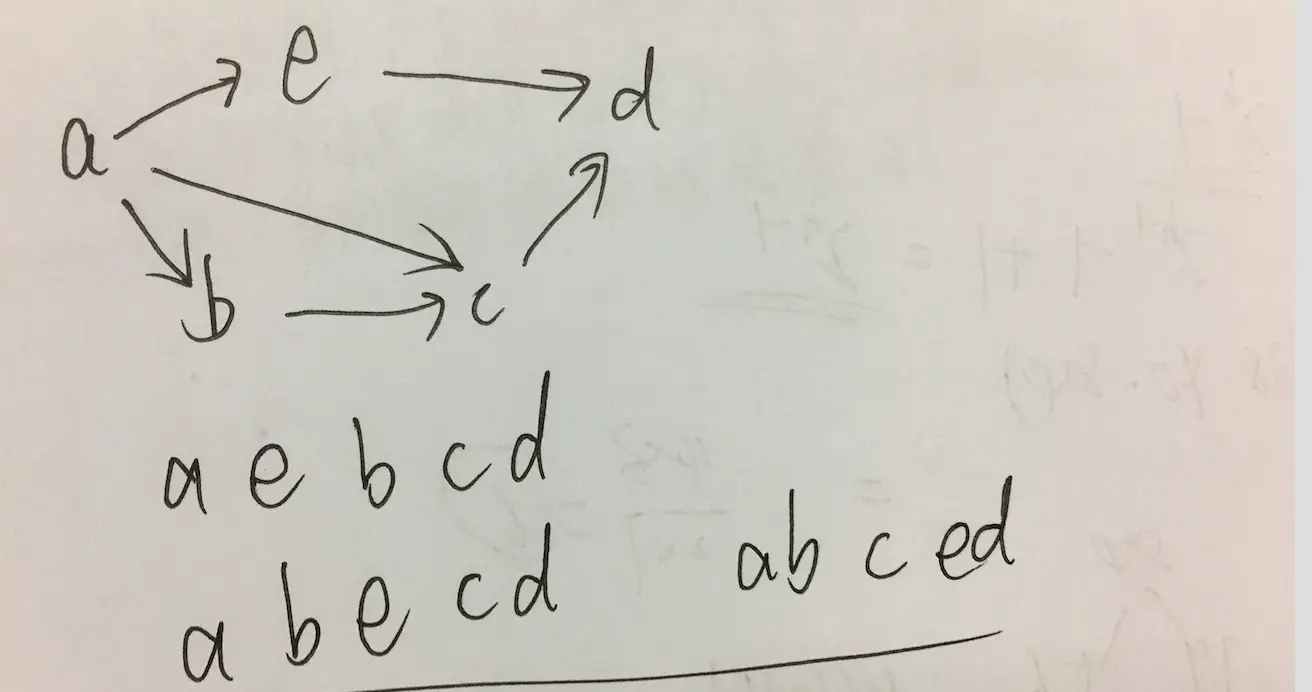 e
d
a
b
c
a e b c d
a b e c d
a b c e d